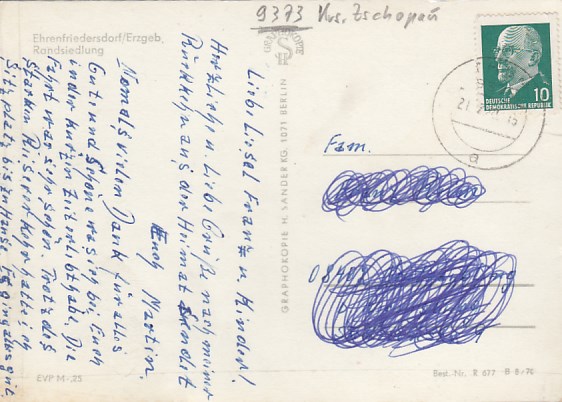 9373 Krs. Zschopau
Ehrenfriedersdorf/Erzgeb.
Randsiedlung
Liebe Liesel Franz u. Kinder!
Herzlich u. Liebe Grüße nach meiner
Rückkehr aus der Heimat sendet
Euch Martin.
Nochmals vielen Dank für alles
Gute und Schöne was ich bei Euch
in der kurzen Zeit erlebt habe. Die
Fahrt war sehr schön. Trotz des
starken Reiseverkehrs hatte ich
Sitzplatz bis zu Hause. Es ging alles gut.
EVP M -,25
GRAPHOKOPIE H. SANDER KG. 1071 BERLIN
GRAPHOKOPIE
H S
10
DEUTSCHE
DEMOKRATISCHE REPUBLIK
a
Fam.
Best. Nr. R 677 B 8/76